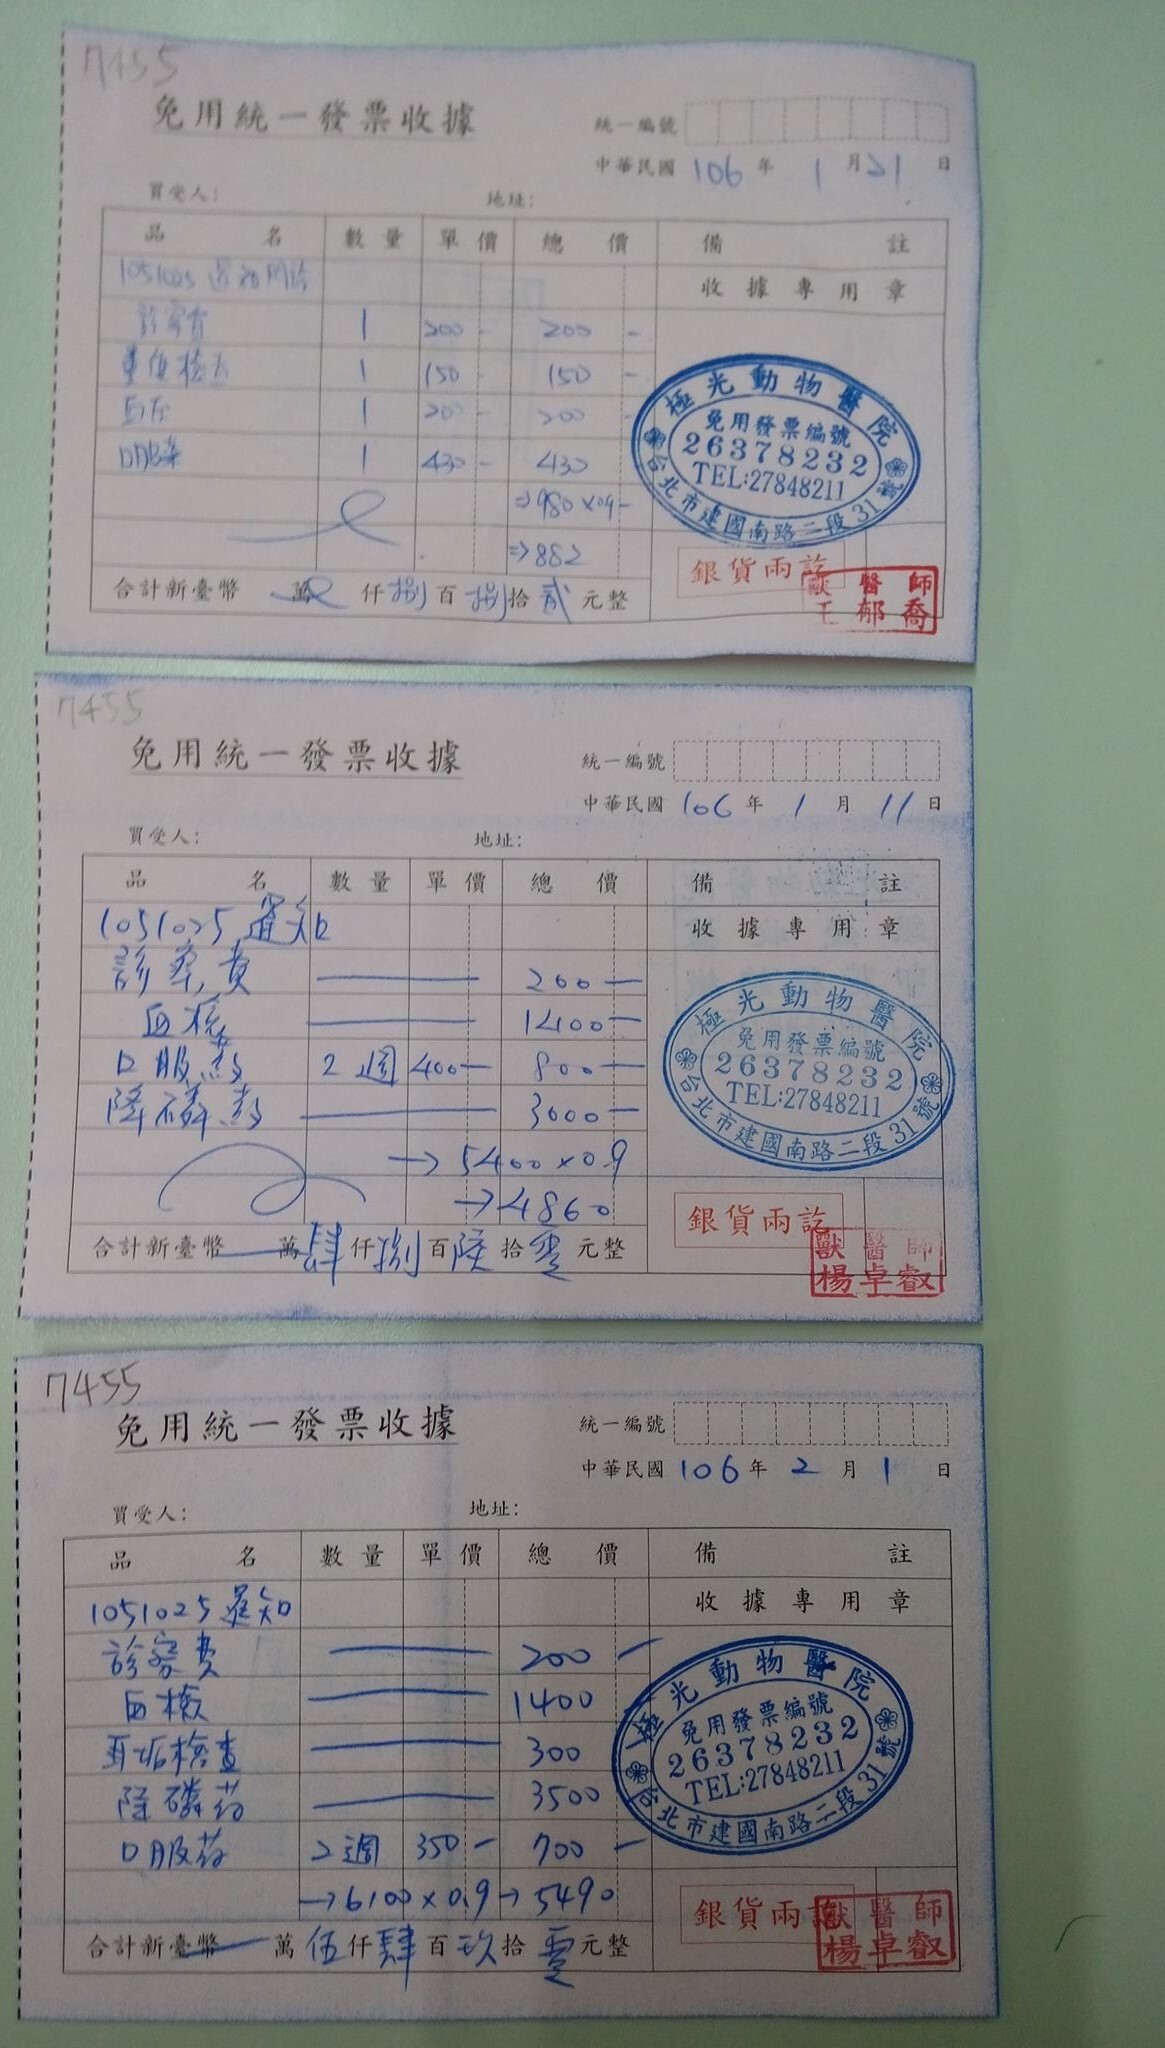 7455
免用統一發票收據
統一編號
中華民國 106 年 1 月 21 日
買受人: 地址:
品 名 數量 單價 總價 備註
1051025
收據專用章
診察費 1 200- 200-
1 150- 150-
血压 1 200- 200-
口服藥 1 430- 430
⇒980×0.9-
⇒882
極光動物醫院
免用發票編號
26378232
TEL:27848211
台北市建國南路二段31號
銀貨兩訖
獸醫師
王郁喬
合計新臺幣 萬 仟捌百捌拾貳元整
7455
免用統一發票收據
統一編號
中華民國 106 年 1 月 11 日
買受人: 地址:
品 名 數量 單價 總價 備註
1051025 暹知
收據專用章
診察費 200-
血檢 1400-
口服藥 2週 400- 800-
降磷藥 3600-
→5400×0.9
→4860
極光動物醫院
免用發票編號
26378232
TEL:27848211
台北市建國南路二段31號
銀貨兩訖
獸醫師
楊卓叡
合計新臺幣 萬肆仟捌百陸拾零元整
7455
免用統一發票收據
統一編號
中華民國 106 年 2 月 1 日
買受人: 地址:
品 名 數量 單價 總價 備註
1051025 暹知
收據專用章
診察費 200-
血檢 1400
耳垢檢查 300
降磷药 3500
口服药 2週 350- 700-
→6100×0.9→5490
極光動物醫院
免用發票編號
26378232
TEL:27848211
台北市建國南路二段31號
銀貨兩訖
獸醫師
楊卓叡
合計新臺幣 萬伍仟肆百玖拾零元整